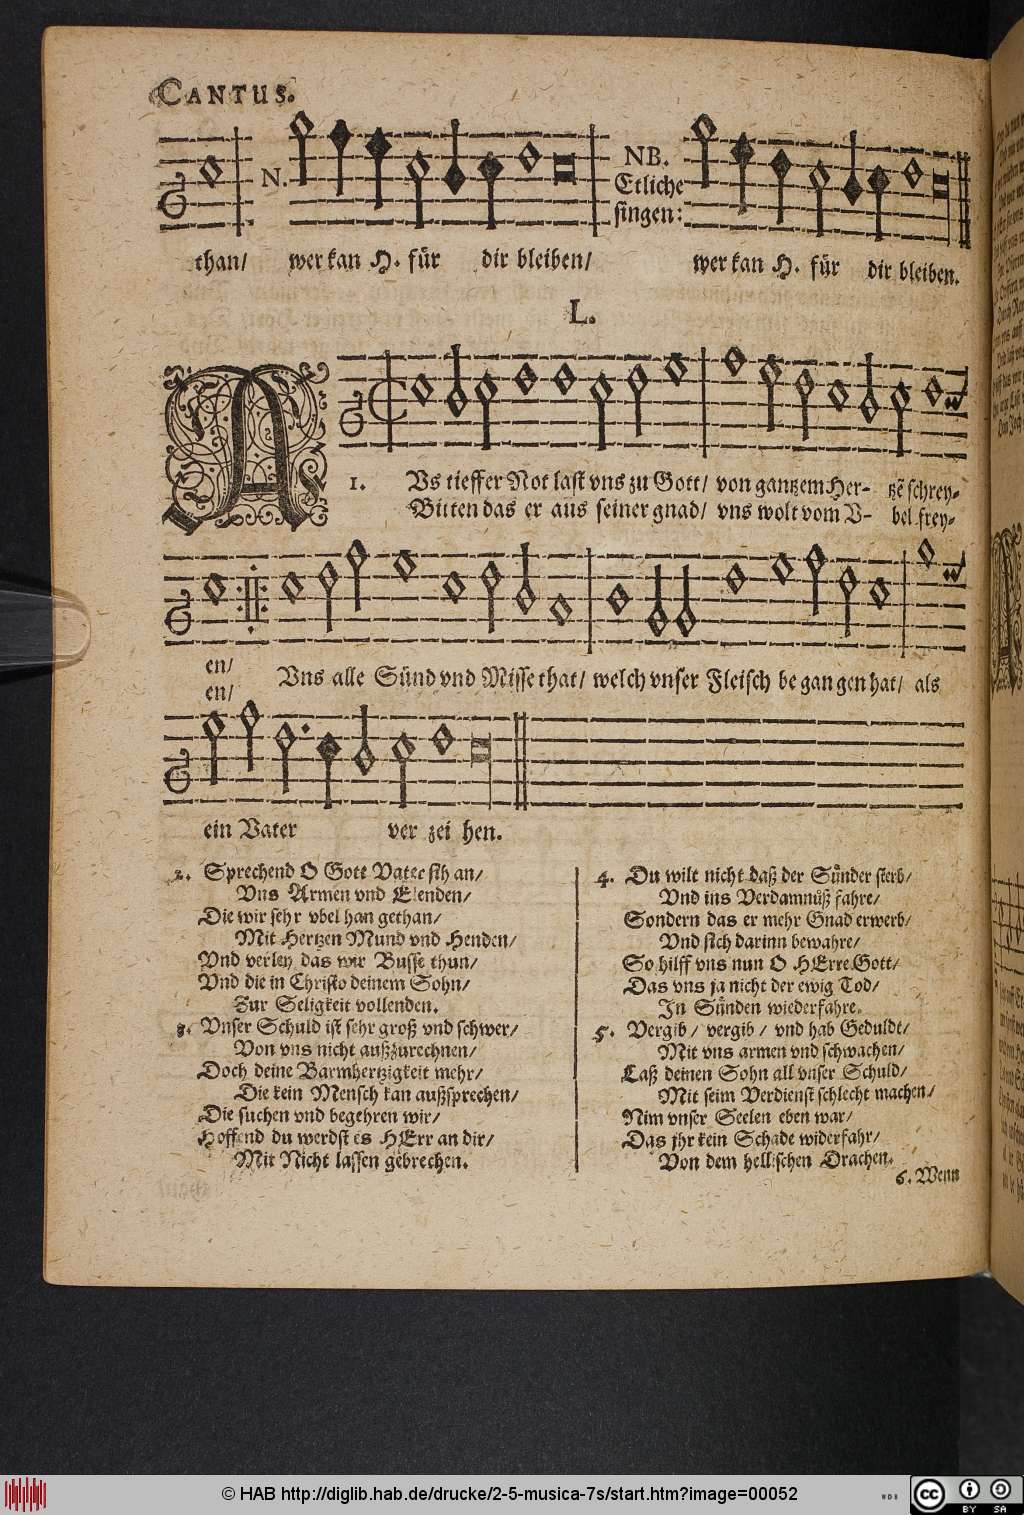 CANTUS.
N.
NB.
Etliche
singen:
than/ wer kan H. für dir bleiben/ wer kan H. für dir bleiben.
L.
1. AUs tieffer Not last vns zu Gott/ von gantzem Her- tzẽ schrey-
Bitten das er aus seiner gnad/ vns wolt vom V- bel frey-
en/
en/
Vns alle Sünd vnd Missethat/ welch vnser Fleisch be gan gen hat/ als
ein Vater ver zei hen.
2. Sprechend O Gott Vater sih an/
Vns Armen vnd Elenden/
Die wir sehr vbel han gethan/
Mit Hertzen Mund vnd Henden/
Vnd verley das wir Busse thun/
Vnd die in Christo deinem Sohn/
Zur Seligkeit vollenden.
3. Vnser Schuld ist sehr groß vnd schwer/
Von vns nicht außzurechnen/
Doch deine Barmhertzigkeit mehr/
Die kein Mensch kan außsprechen/
Die suchen vnd begehren wir/
Hoffend du werdst es HErr an dir/
Mit Nicht lassen gebrechen.
4. Du wilt nicht daß der Sünder sterb/
Vnd ins Verdamnüß fahre/
Sondern das er mehr Gnad erwerb/
Vnd sich darinn bewahre/
So hilff vns nun O HErre Gott/
Das vns ja nicht der ewig Tod/
In Sünden wiederfahre.
5. Vergib/ vergib/ vnd hab Geduldt/
Mit vns armen vnd schwachen/
Laß deinen Sohn all vnser Schuld/
Mit seim Verdienst schlecht machen/
Nim vnser Seelen eben war/
Das jhr kein Schade widerfahr/
Von dem hellischen Drachen.
6. Wenn
© HAB http://diglib.hab.de/drucke/2-5-musica-7s/start.htm?image=00052
WDB
cc
BY SA